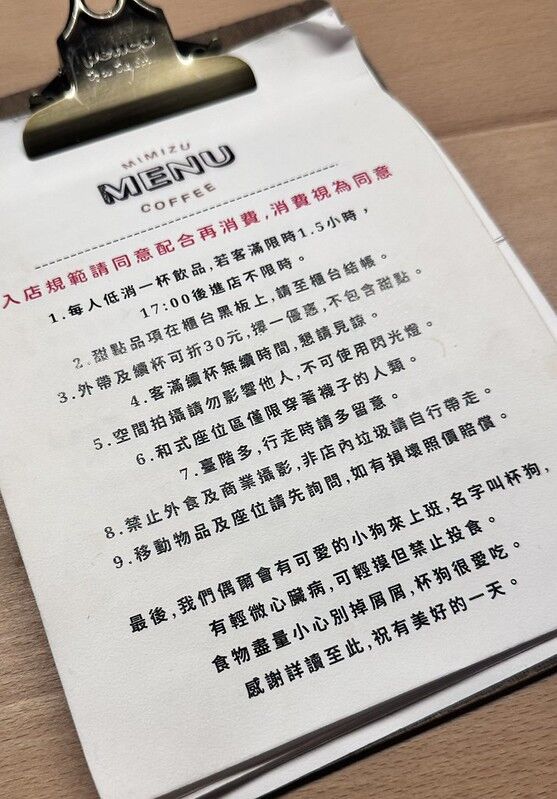 penco
MIMIZU
MENU
COFFEE
入店規範請同意配合再消費,消費視為同意
1.每人低消一杯飲品,若客滿限時1.5小時,
17:00後進店不限時。
2.甜點品項在櫃台黑板上,請至櫃台結帳。
3.外帶及續杯可折30元,擇一優惠,不包含甜點。
4.客滿續杯無續時間,懇請見諒。
5.空間拍攝請勿影響他人,不可使用閃光燈。
6.和式座位區僅限穿著襪子的人類。
7.臺階多,行走時請多留意。
8.禁止外食及商業攝影,非店內垃圾請自行帶走。
9.移動物品及座位請先詢問,如有損壞照價賠償。
最後,我們偶爾會有可愛的小狗來上班,名字叫杯狗,
有輕微心臟病,可輕摸但禁止投食。
食物盡量小心別掉屑屑,杯狗很愛吃。
感謝詳讀至此,祝有美好的一天。